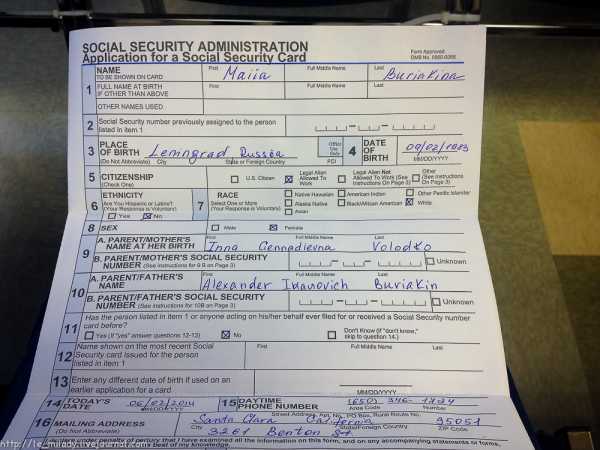 SOCIAL SECURITY ADMINISTRATION
Application for a Social Security Card
Form Approved
OMB No. 0960-0066
1 NAME TO BE SHOWN ON CARD First Maiia Full Middle Name Last Buriakina
FULL NAME AT BIRTH IF OTHER THAN ABOVE First Full Middle Name Last
OTHER NAMES USED
2 Social Security number previously assigned to the person listed in item 1
3 PLACE OF BIRTH Lemngrad Russia
(Do Not Abbreviate) City State or Foreign Country FCI
Office Use Only
4 DATE OF BIRTH MM/DD/YYYY
5 CITIZENSHIP (Check One) U.S. Citizen Legal Alien Allowed To Work Legal Alien Not Allowed To Work (See Instructions On Page 3) Other (See Instructions On Page 3)
6 ETHNICITY Are You Hispanic or Latino? (Your Response is Voluntary) Yes No
7 RACE Select One or More (Your Response is Voluntary) Native Hawaiian American Indian Other Pacific Islander
Alaska Native Black/African American White
Asian
8 SEX Male Female
9 A. PARENT/MOTHER'S NAME AT HER BIRTH First Inna Full Middle Name Gennadievna Last Volodko
B. PARENT/MOTHER'S SOCIAL SECURITY NUMBER (See instructions for 9 B on Page 3) Unknown
10 A. PARENT/FATHER'S NAME First Alexander Full Middle Name Ivanovich Last Buriakin
B. PARENT/FATHER'S SOCIAL SECURITY NUMBER (See instructions for 10B on Page 3) Unknown
11 Has the person listed in item 1 or anyone acting on his/her behalf ever filed for or received a Social Security number card before?
Yes (If "yes" answer questions 12-13) No Don't Know (If "don't know," skip to question 14.)
12 Name shown on the most recent Social Security card issued for the person listed in item 1 First Full Middle Name Last
13 Enter any different date of birth if used on an earlier application for a card MM/DD/YYYY
14 TODAY'S DATE 06/02/2014 MM/DD/YYYY 15 DAYTIME PHONE NUMBER Area Code Number
16 MAILING ADDRESS (Do Not Abbreviate) Street Address, Apt. No., PO Box, Rural Route No.
Santa Clara California 95051
City State/Foreign Country ZIP Code
3261 Benton St
I declare under penalty of perjury that I have examined all the information on this form, and on any accompanying statements or forms,
best of my knowledge.